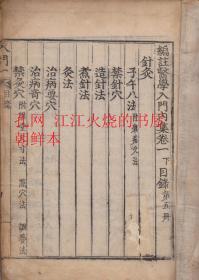 編註醫學入門內集卷一下目錄
第五冊
針灸
子午八法
禁針穴
造針法
煮針法
灸法
治病要穴
治病奇穴
禁灸穴
點穴法
調養法
孔网 江江火烧的书店
朝鲜本